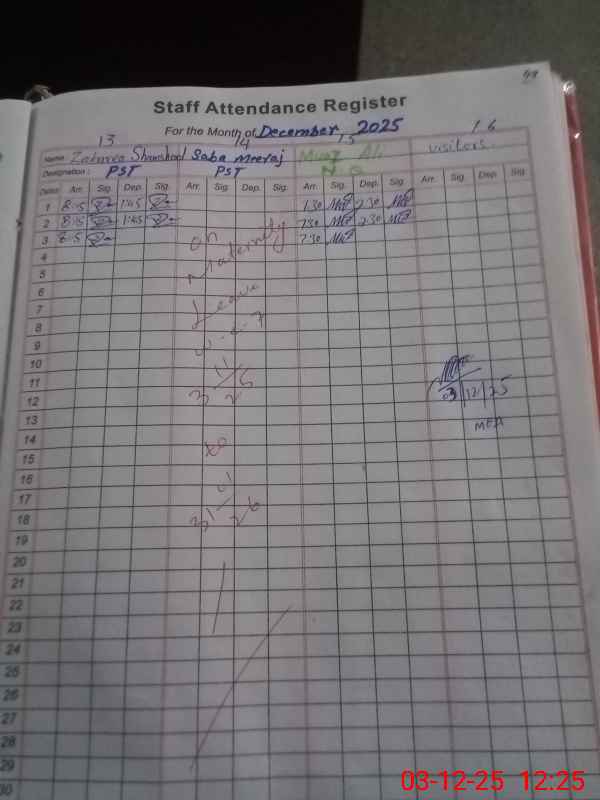 49
Staff Attendance Register
For the Month of December, 2025
13 14 15 16
Name Zahreea Shamshad Saba Meeraj Muaz Ali visitors.
Designation : PST PST N.Q
Dates Arr. Sig. Dep. Sig. Arr. Sig. Dep. Sig. Arr. Sig. Dep. Sig. Arr. Sig. Dep. Sig.
1 8:15 1:45 7:30 2:30
2 8:15 1:45 7:30 2:30
3 8:15 on 7:30
4 Maternity
5
6
7 Leave
8 w.e.f
9
10
11 3/11/25
12 03/12/25
13 MEA
14
15 to
16
17
18 31/01/26
19
20
21
22
23
24
25
26
27
28
29
30
03-12-25 12:25